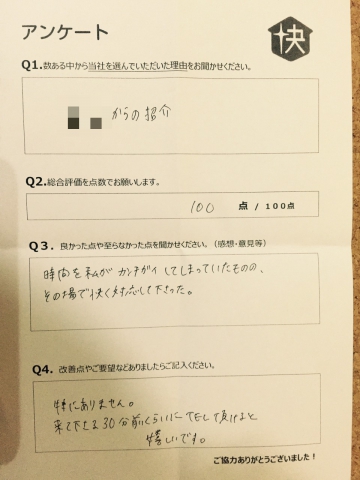 アンケート
快
Q1.数ある中から当社を選んでいただいた理由をお聞かせください。
からの紹介
Q2.総合評価を点数でお願いします。
100 点 / 100点
Q3．良かった点や至らなかった点を聞かせください。（感想・意見等）
時間を私がカンチガイしてしまっていたものの、
その場で快く対応して下さった。
Q4．改善点やご要望などありましたらご記入ください。
特にありません。
来て下さる30分前くらいにTELして頂けると
嬉しいです。
ご協力ありがとうございました！